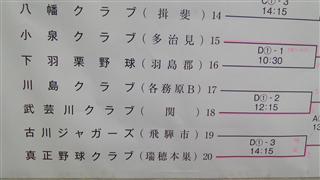 八幡クラブ（揖斐）14
C①-3
14:15
小泉クラブ（多治見）15
D①-1
10:30
下羽栗野球（羽島郡）16
川島クラブ（各務原B）17
D①-2
12:15
武芸川クラブ（関）18
古川ジャガーズ（飛騨市）19
D①-3
14:15
真正野球クラブ（瑞穂本巣）20